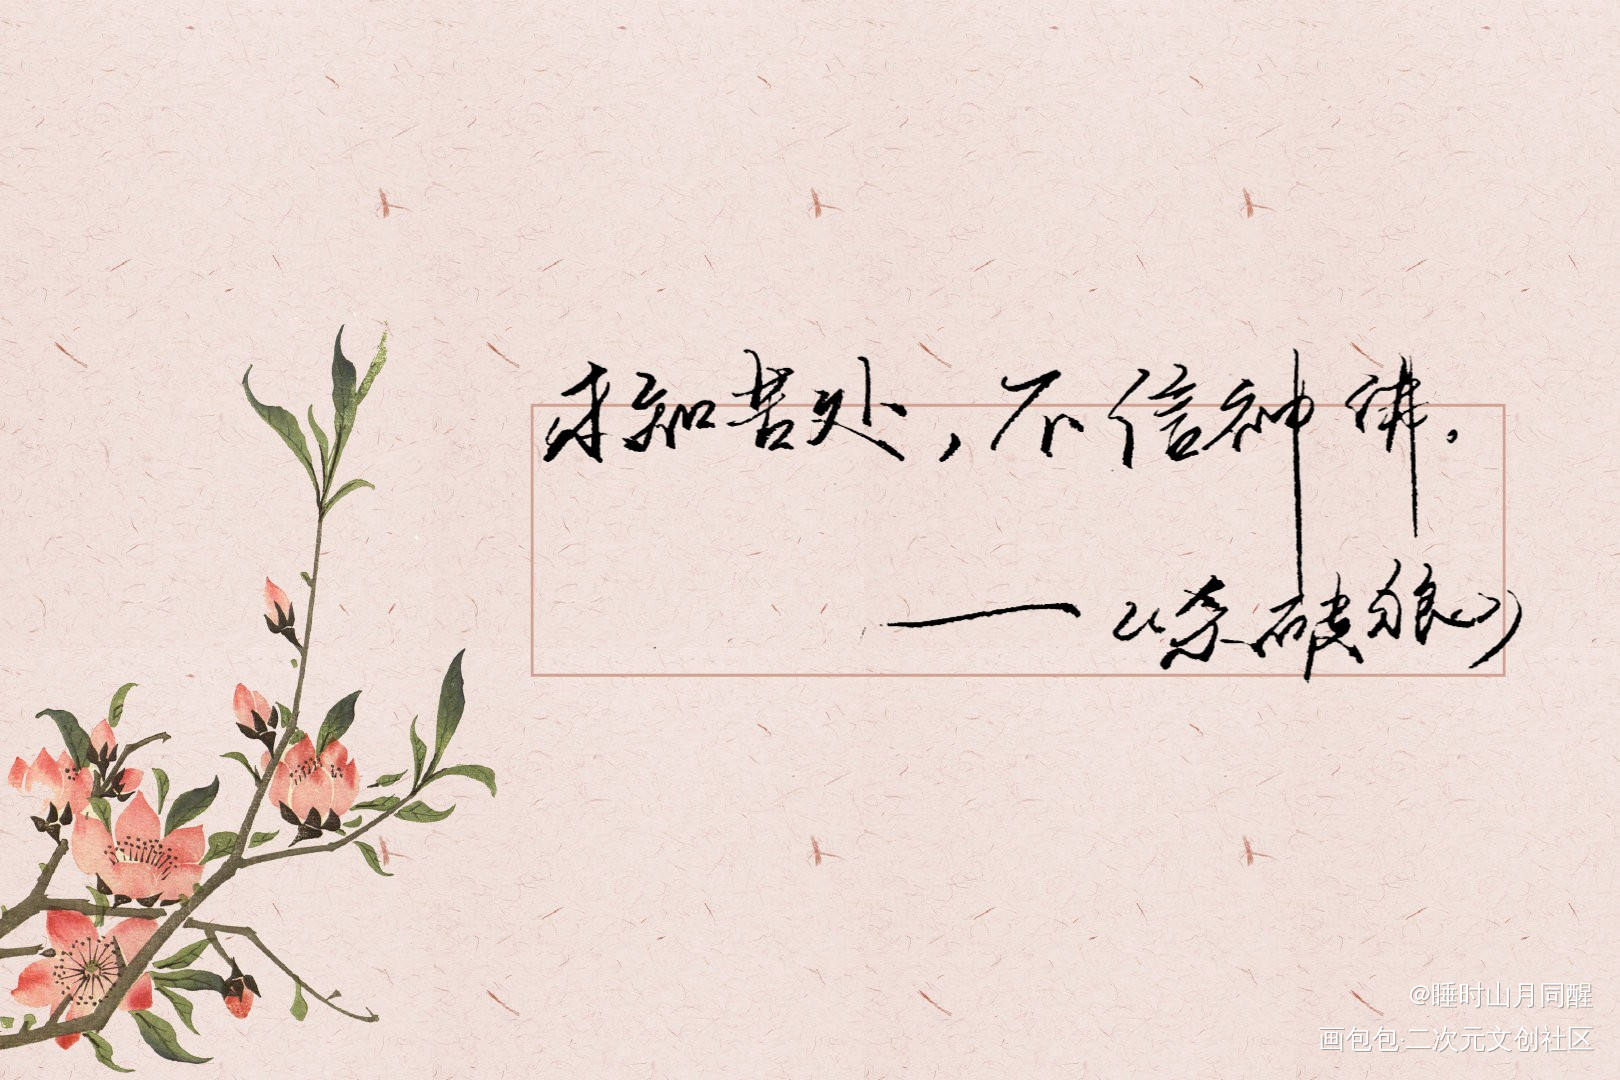 未知苦处，不信神佛.
——《杀破狼》
@睡时山月同醒
画包包·二次元文创社区